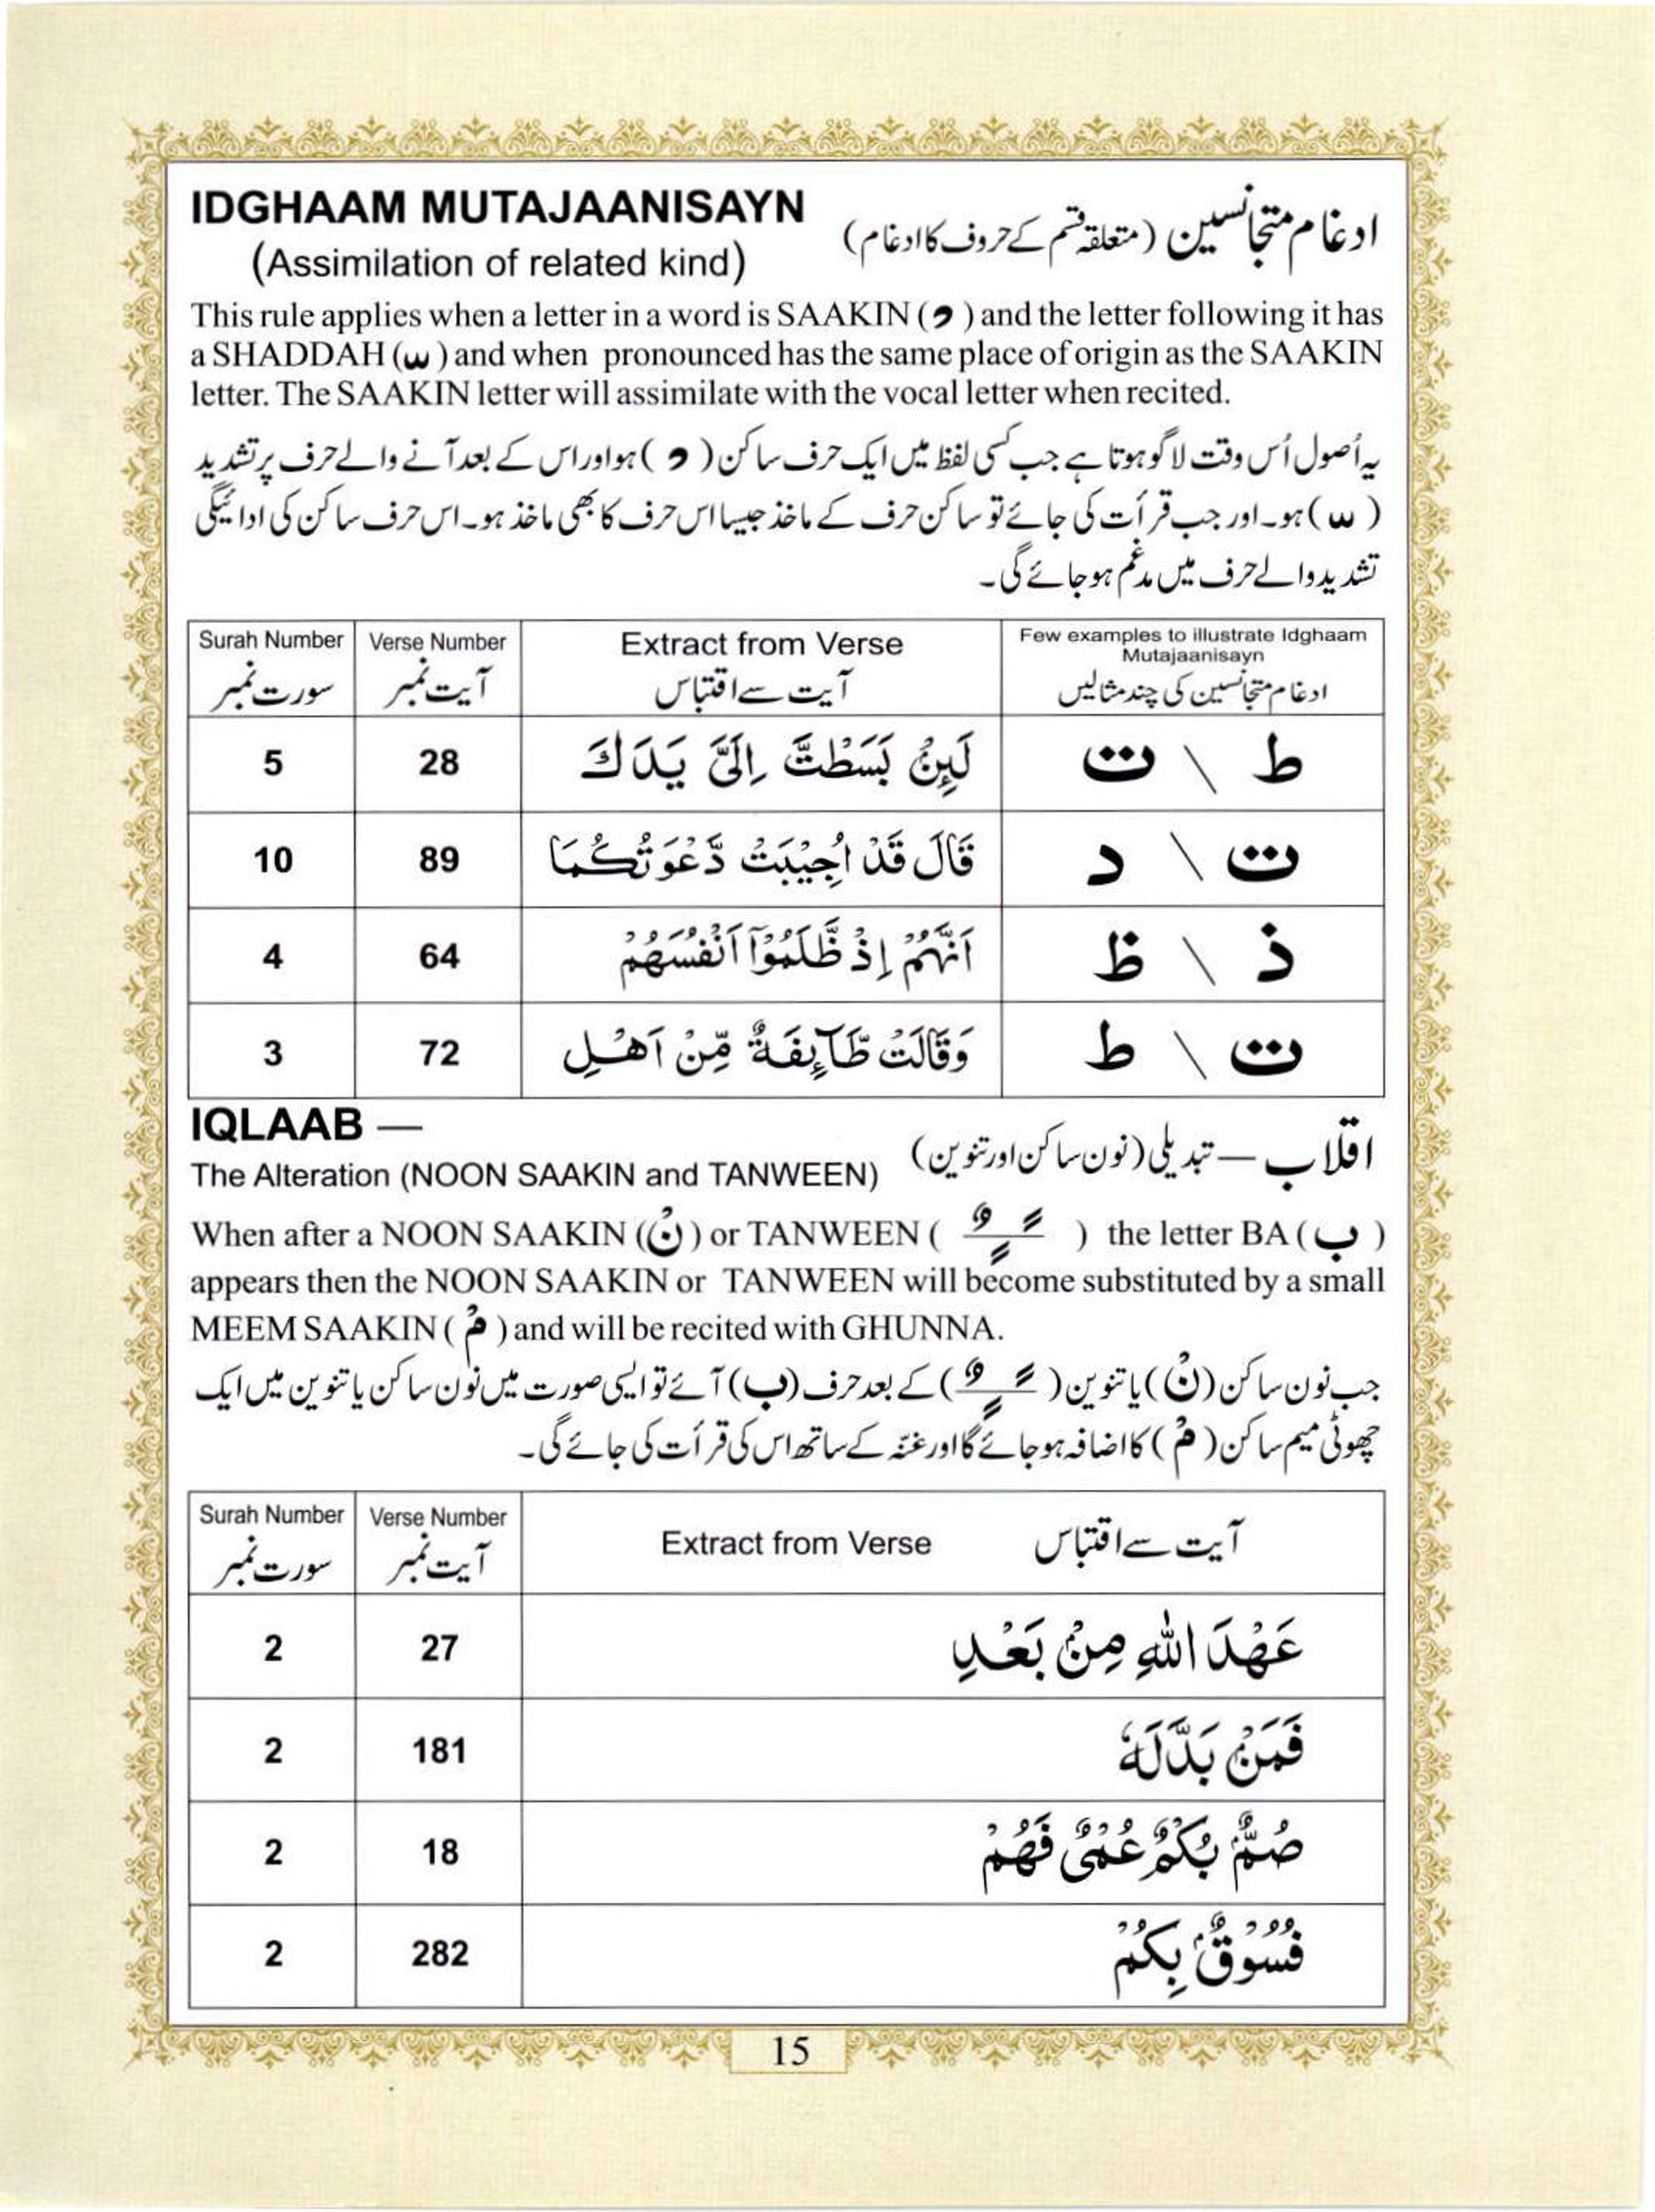 IDGHAAM MUTAJAANISAYN
ادغام متجانسین (متعلقہ قسم کے حروف کا ادغام)
(Assimilation of related kind)
This rule applies when a letter in a word is SAAKIN ( ْ ) and the letter following it has
a SHADDAH ( ّ ) and when pronounced has the same place of origin as the SAAKIN
letter. The SAAKIN letter will assimilate with the vocal letter when recited.
یہ اُصول اُس وقت لاگو ہوتا ہے جب کسی لفظ میں ایک حرف ساکن ( ْ ) ہو اور اس کے بعد آنے والے حرف پر تشدید
( ّ ) ہو۔ اور جب قرأت کی جائے تو ساکن حرف کے ماخذ جیسا اس حرف کا بھی ماخذ ہو۔ اس حرف ساکن کی ادائیگی
تشدید والے حرف میں مدغم ہو جائے گی۔
Surah Number Verse Number Extract from Verse Few examples to illustrate Idghaam
Mutajaanisayn
سورت نمبر آیت نمبر آیت سے اقتباس ادغام متجانسین کی چند مثالیں
5 28 لَئِنْۢ بَسَطْتَّ اِلَیَّ یَدَكَ ط \ ت
10 89 قَالَ قَدْ اُجِیْبَتْ دَّعْوَتُكُمَا ت \ د
4 64 اَنَّهُمْ اِذْ ظَّلَمُوْۤا اَنْفُسَهُمْ ذ \ ظ
3 72 وَقَالَتْ طَّآىِٕفَةٌ مِّنْ اَهْلِ ت \ ط
IQLAAB —
اقلاب — تبدیلی (نون ساکن اور تنوین)
The Alteration (NOON SAAKIN and TANWEEN)
When after a NOON SAAKIN (نْ) or TANWEEN ( ً ٍ ٌ ) the letter BA ( ب )
appears then the NOON SAAKIN or TANWEEN will become substituted by a small
MEEM SAAKIN ( مْ ) and will be recited with GHUNNA.
جب نون ساکن (نْ) یا تنوین ( ً ٍ ٌ ) کے بعد حرف (ب) آئے تو ایسی صورت میں نون ساکن یا تنوین میں ایک
چھوٹی میم ساکن (مْ) کا اضافہ ہو جائے گا اور غنّہ کے ساتھ اس کی قرأت کی جائے گی۔
Surah Number Verse Number Extract from Verse آیت سے اقتباس
سورت نمبر آیت نمبر
2 27 عَهْدَ اللّٰهِ مِنْۢ بَعْدِ
2 181 فَمَنْۢ بَدَّلَهٗ
2 18 صُمٌّۢ بُكْمٌ عُمْیٌ فَهُمْ
2 282 فُسُوْقٌۢ بِكُمْ
15